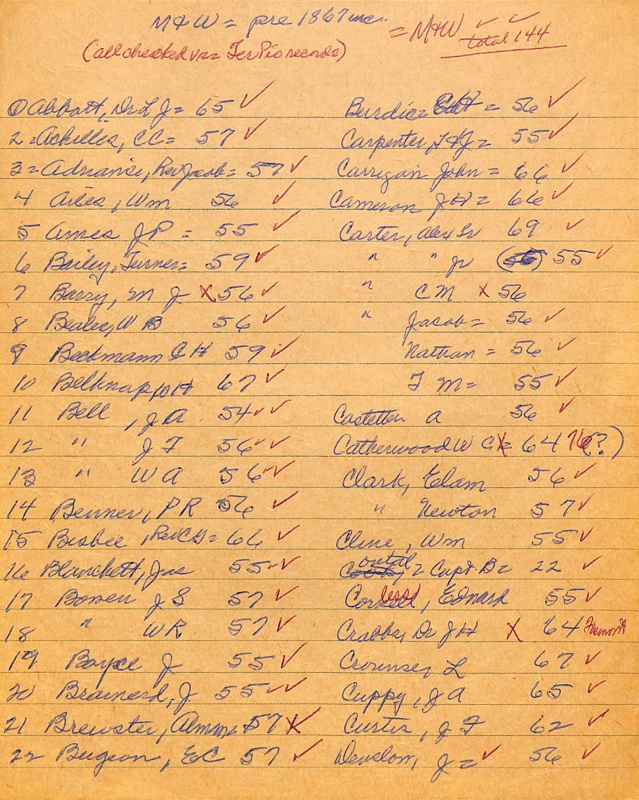 M&W = pre 1867 inc.. = M&W ✓ ✓
(all checked via Ter Pio records) total 144
① Abbott, Dr L J = 65 ✓
2 = Achilles, CC = 57 ✓
3 = Adriance, Rev Jacob = 57 ✓
4 Ailes, Wm 56 ✓
5 Ames J P = 55 ✓
6 Bailey, Turner = 59 ✓
7 Barry, M J X 56 ✓
8 Beales, W B 56 ✓
9 Beckmann G H 59 ✓
10 Belknap, W H 67 ✓
11 Bell, J A 54 ✓✓
12 " J F 56 ✓✓
13 " W A 56 ✓✓
14 Benner, P R 56 ✓
15 Bisbee, Rev CG = 66 ✓
16 Blanchett, Jas 55 ✓✓
17 Bowen J S 57 ✓
18 " WR 57 ✓
19 Boyce J 55 ✓✓
20 Brainerd, J 55 ✓✓
21 Brewster, Almon = 57 X
22 Bugeon, EC 57 ✓
Burdic = = 56 ✓
Carpenter, J = 55 ✓
Carrigan John = 66 ✓
Cameron J H = 66 ✓
Carter, Alex Sr 69 ✓
" " Jr (56) 55 ✓
" C M X 56
" Jacob = 56 ✓
Nathan = 56 ✓
F M = 55 ✓
Castetter A 56 ✓
Catherwood W C X = 64 (?)
Clark, Elam 56 ✓
" Newton 57 ✓
Cline, Wm 55 ✓
= Capt B = 22 ✓
, Edward 55 ✓
Crabbs, Dr J H X 64 Fremont
Crounse, L 67 ✓
Cuppy, J A 65 ✓
Curtis, J F 62 ✓
J = ✓ 56 ✓